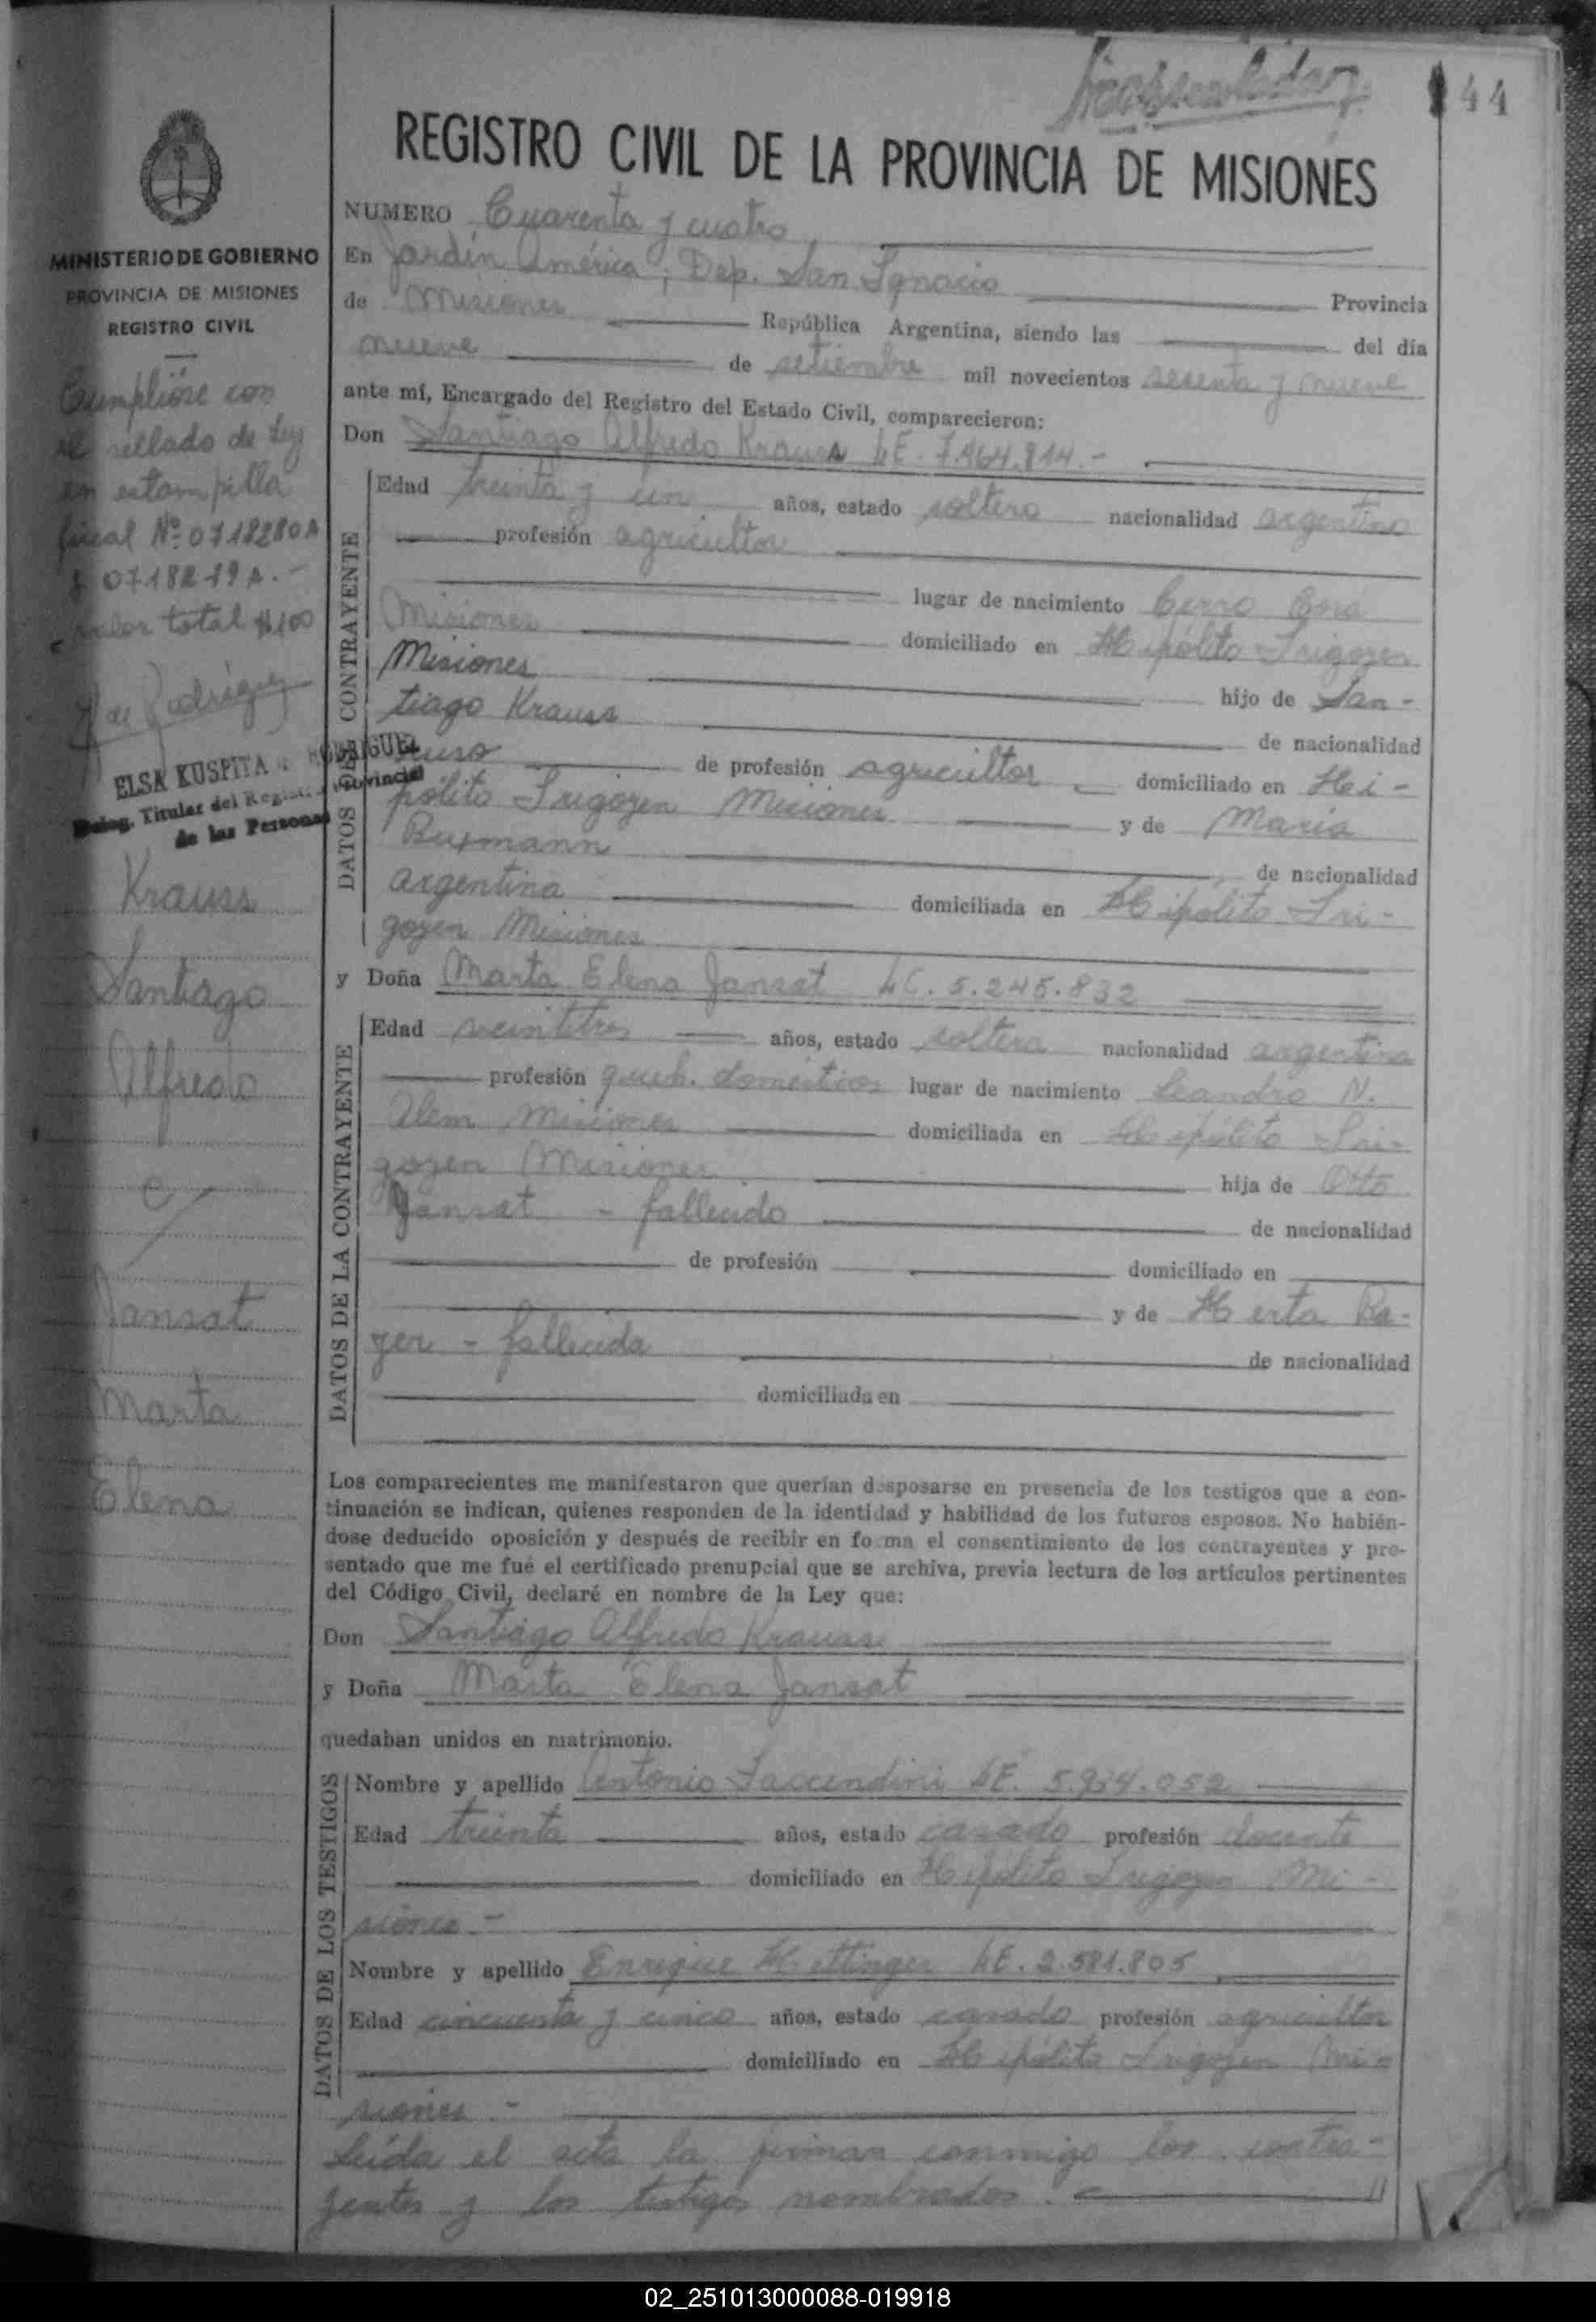 44
REGISTRO CIVIL DE LA PROVINCIA DE MISIONES
MINISTERIO DE GOBIERNO
PROVINCIA DE MISIONES
REGISTRO CIVIL
Cumplióse con
el sellado de Ley
en estampilla
fiscal Nº 0718280A
y 0718279A.-
valor total $100
ELSA KUSPITA RODRIGUEZ
Deleg. Titular del Registro Provincial
de las Personas
Krauss
Santiago
Alfredo
e
Jansat
Marta
Elena
NUMERO Cuarenta y cuatro
En Jardín América, Dep. San Ignacio Provincia
de Misiones República Argentina, siendo las del día
nueve de setiembre mil novecientos sesenta y nueve
ante mí, Encargado del Registro del Estado Civil, comparecieron:
Don Santiago Alfredo Krauss LE. 7.464.814.-
DATOS DEL CONTRAYENTE
Edad treinta y un años, estado soltero nacionalidad argentino
profesión agricultor
lugar de nacimiento Cerro Corá
Misiones domiciliado en Hipólito Irigoyen
Misiones hijo de San-
tiago Krauss de nacionalidad
ruso de profesión agricultor domiciliado en Hi-
pólito Irigoyen Misiones y de María
Buxmann de nacionalidad
argentina domiciliada en Hipólito Iri-
goyen Misiones
y Doña Marta Elena Jansat LC. 5.245.832
DATOS DE LA CONTRAYENTE
Edad veintitres años, estado soltera nacionalidad argentina
profesión queh. domésticos lugar de nacimiento Leandro N.
Alem Misiones domiciliada en Hipólito Iri-
goyen Misiones hija de Otto
Jansat - fallecido de nacionalidad
de profesión domiciliado en
y de Herta Ra-
yer - fallecida de nacionalidad
domiciliada en
Los comparecientes me manifestaron que querían desposarse en presencia de los testigos que a con-
tinuación se indican, quienes responden de la identidad y habilidad de los futuros esposos. No habién-
dose deducido oposición y después de recibir en forma el consentimiento de los contrayentes y pre-
sentado que me fué el certificado prenupcial que se archiva, previa lectura de los artículos pertinentes
del Código Civil, declaré en nombre de la Ley que:
Don Santiago Alfredo Krauss
y Doña Marta Elena Jansat
quedaban unidos en matrimonio.
DATOS DE LOS TESTIGOS
Nombre y apellido Antonio Faccendini LE. 5.934.052
Edad treinta años, estado casado profesión docente
domiciliado en Hipólito Irigoyen Mi-
siones -
Nombre y apellido Enrique Hettinger LE. 2.581.805
Edad cincuenta y cinco años, estado casado profesión agricultor
domiciliado en Hipólito Irigoyen Mi-
siones -
Leída el acta la firman conmigo los contra-
yentes y los testigos nombrados.
02_251013000088-019918